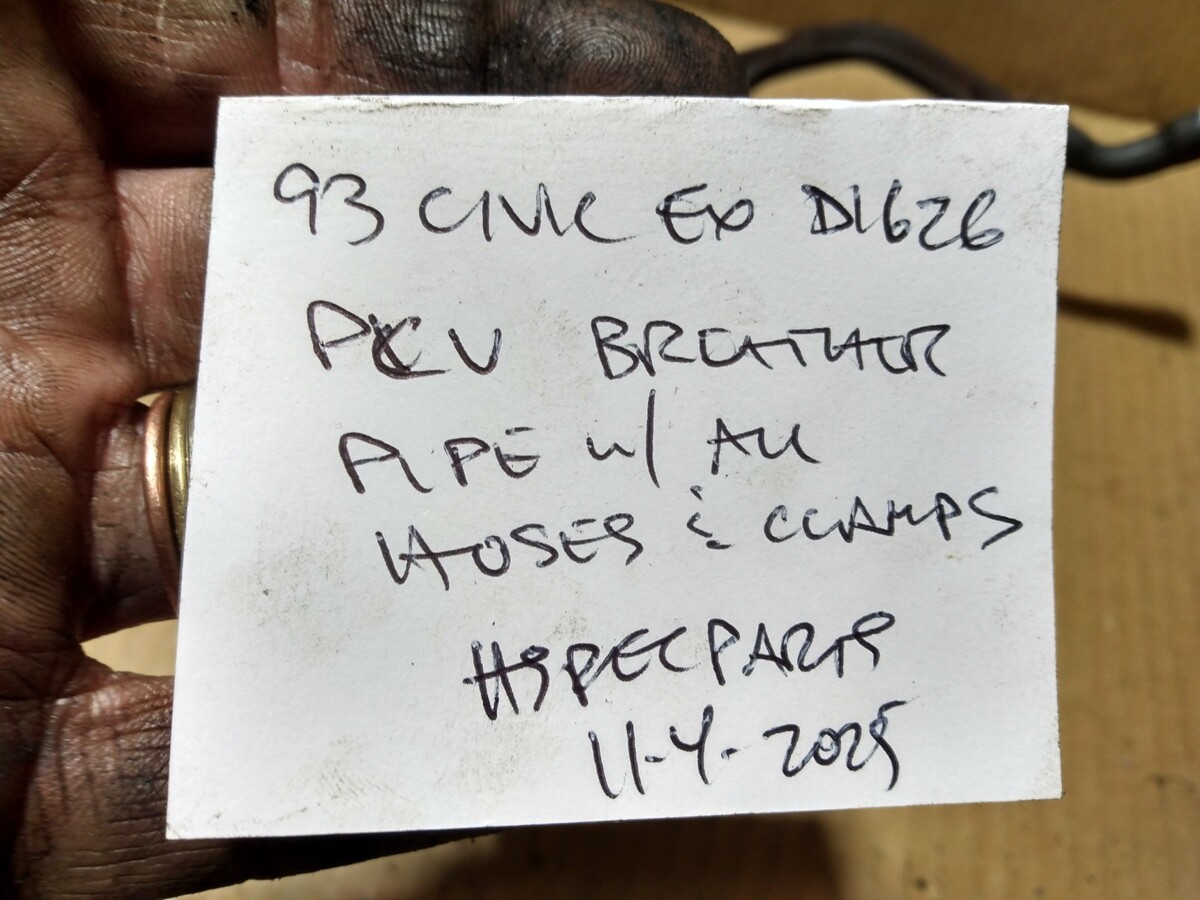 93 CIVIC EX D16Z6
PCV BREATHER
PIPE W/ ALL
HOSES & CLAMPS
HSPECPARTS
11-4-2025